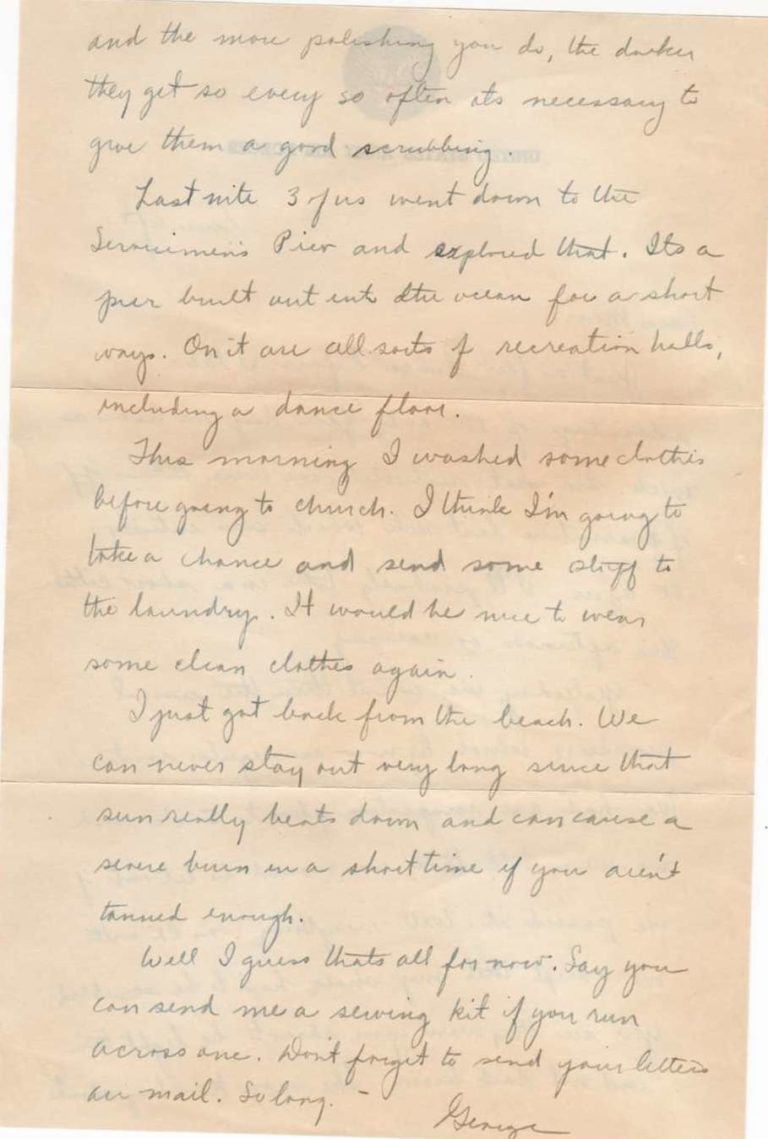 and the more polishing you do, the darker
they get so every so often its necessary to
give them a good scrubbing.
Last nite 3 of us went down to the
Servicimen's Pier and explored that. Its a
pier built out into the ocean for a short
ways. On it are all sorts of recreation halls,
including a dance floor.
This morning I washed some clothes
before going to church. I think I'm going to
take a chance and send some stuff to
the laundry. It would be nice to wear
some clean clothes again.
I just got back from the beach. We
can never stay out very long since that
sun really beats down and can cause a
severe burn in a short time if you aren't
tanned enough.
Well I guess thats all for now. Say you
can send me a sewing kit if you run
across one. Don't forget to send your letters
air mail. So long. -
George